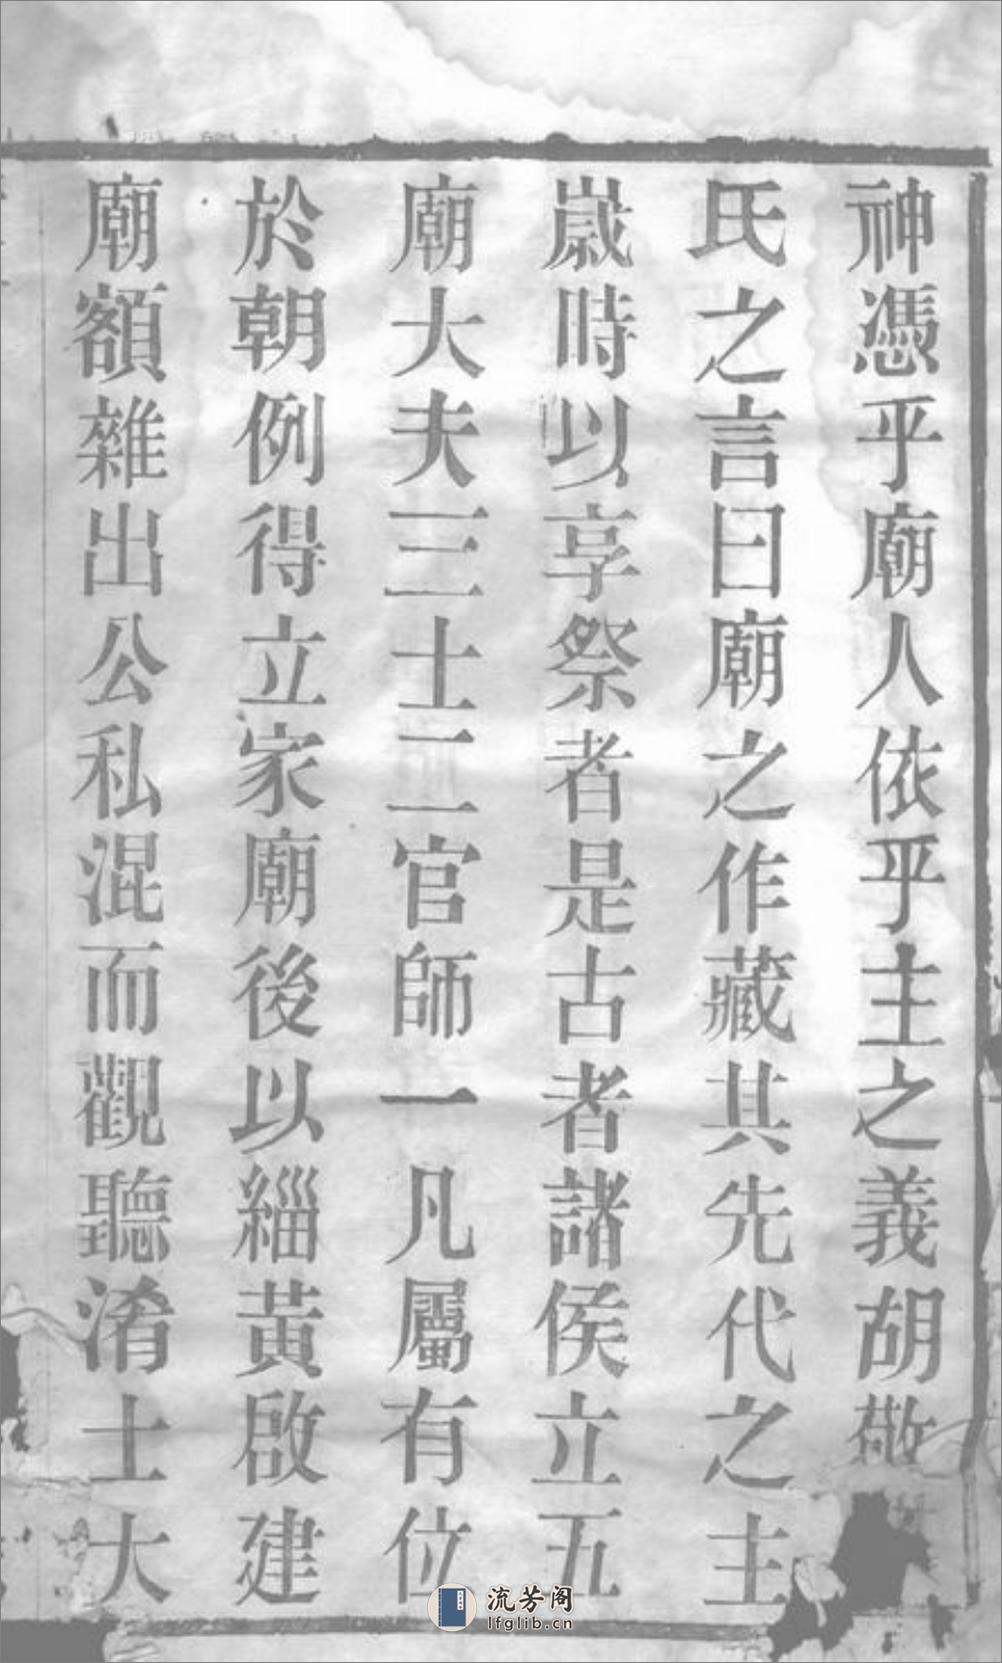 神憑乎廟人依乎主之義胡敬
氏之言曰廟之作藏其先代之主
嵗時以享祭者是古者諸侯立五
廟大夫三士二官師一凡屬有位
於朝例得立家廟後以緇黃啟建
廟額雜出公私混而觀聽淆士大
流芳阁
lfglib.cn